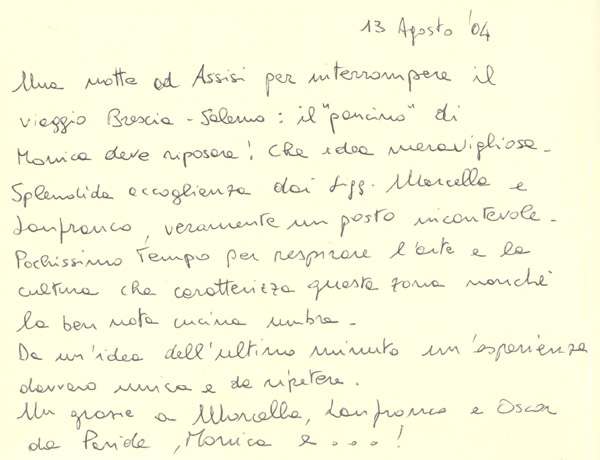 13 Agosto '04
Una notte ad Assisi per interrompere il
viaggio Brescia - Salerno : il "pancino" di
Monica deve riposare! Che idea meravigliosa -
Splendida accoglienza dai Sigg. Marcella e
Lanfranco, veramente un posto incantevole -
Pochissimo tempo per respirare l'arte e la
cultura che caratterizza questa zona nonchè
la ben nota cucina umbra -
Da un'idea dell'ultimo minuto un'esperienza
davvero unica e da ripetere.
Un grazie a Marcella, Lanfranco e Oscar
da Paride, Monica e . . . !